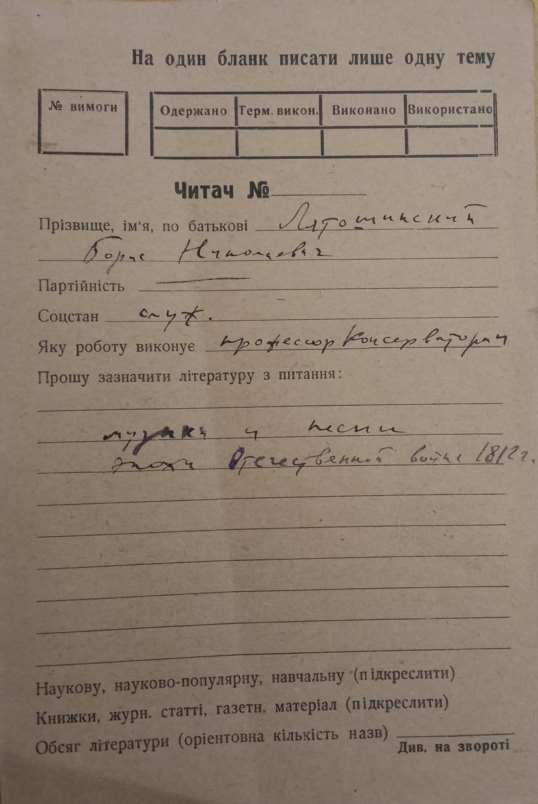 На один бланк писати лише одну тему
№ вимоги
Одержано Терм. викон. Виконано Використано
Читач №
Прізвище, ім'я, по батькові Лятошинский
Борис Николаевич
Партійність —
Соцстан служ.
Яку роботу виконує профессор Консерватории
Прошу зазначити літературу з питання:
музыка и песни
эпохи Отечественной войны 1812 г.
Наукову, науково-популярну, навчальну (підкреслити)
Книжки, журн. статті, газетн. матеріал (підкреслити)
Обсяг літератури (орієнтовна кількість назв)
Див. на звороті